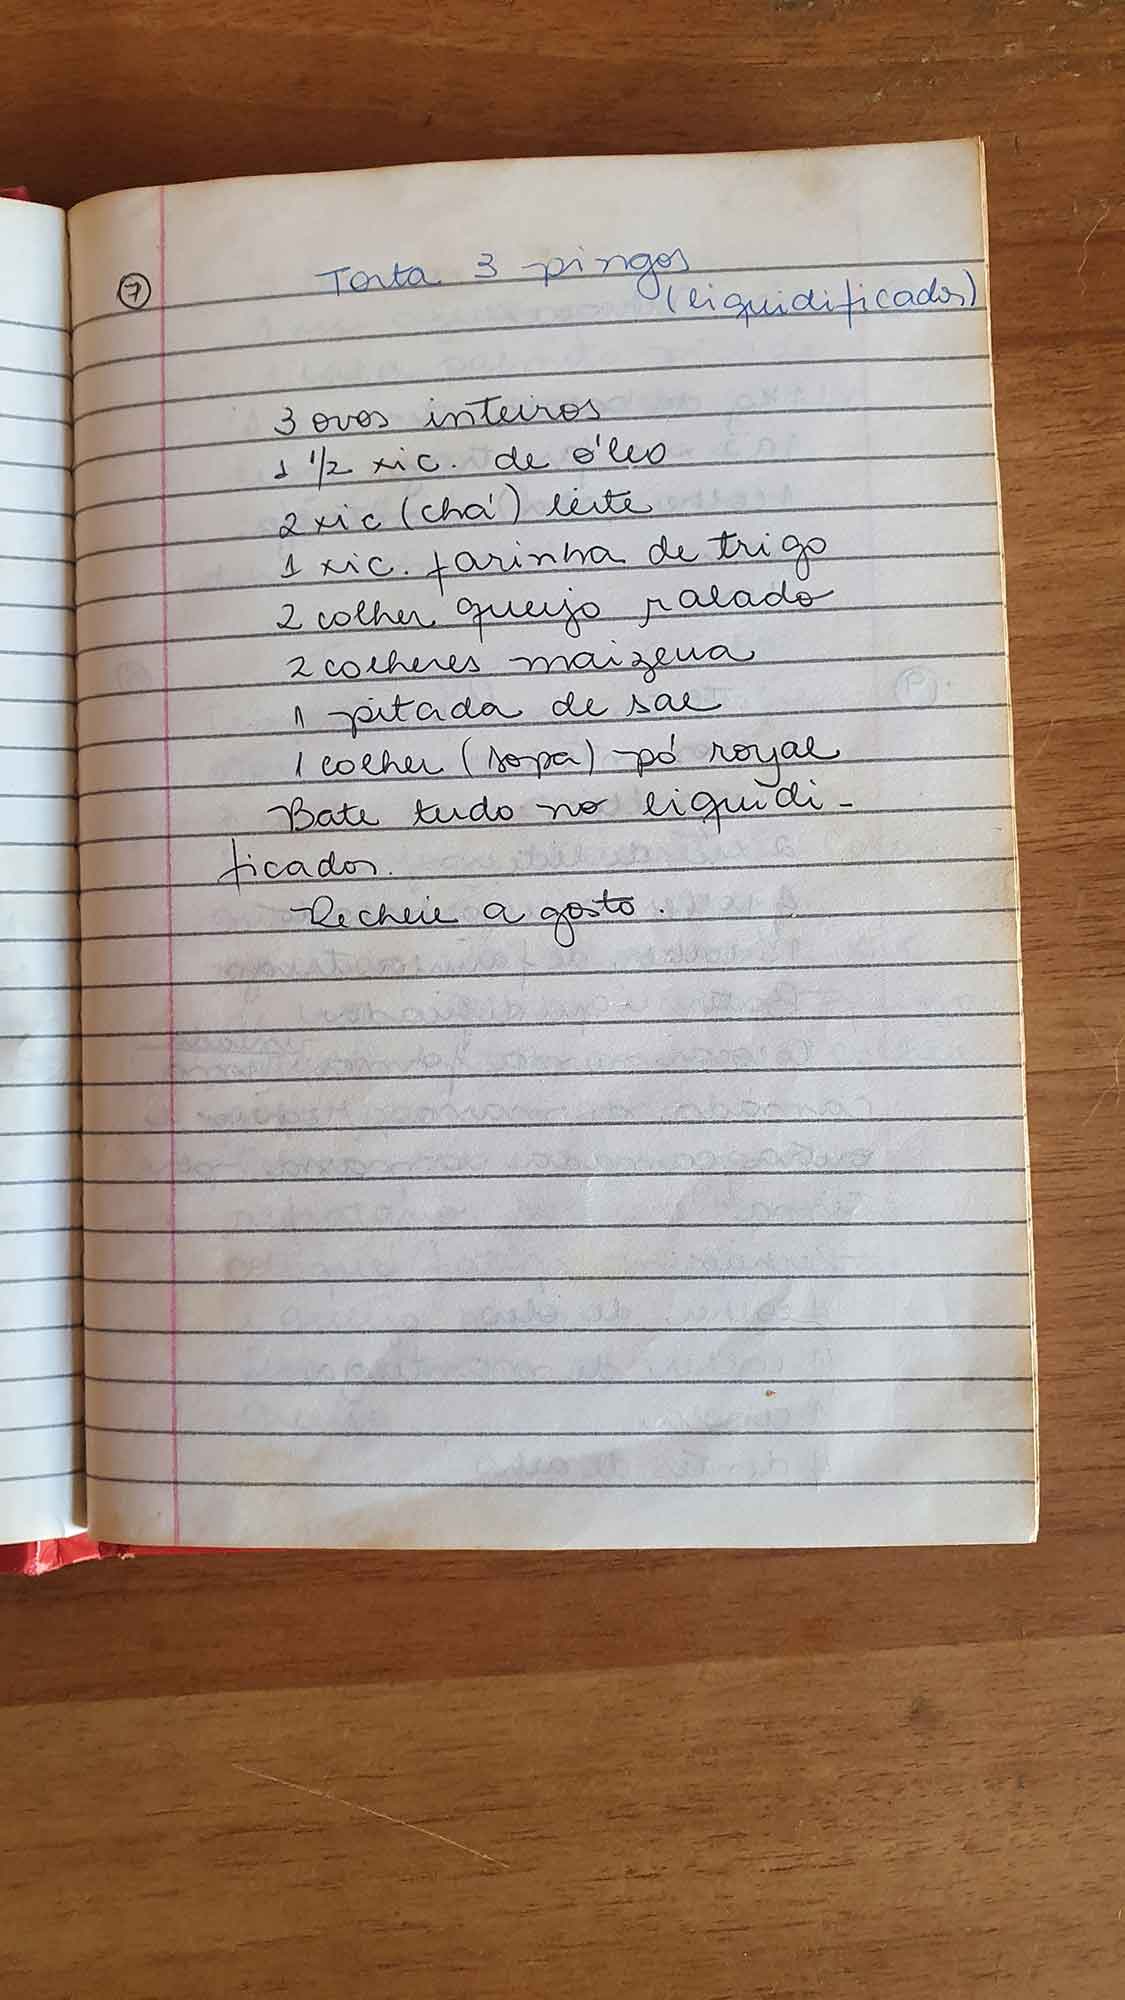 7
Torta 3 pingos
(liquidificador)
3 ovos inteiros
1 1/2 xic. de óleo
2 xic (chá) leite
1 xic. farinha de trigo
2 colher queijo ralado
2 colheres maizena
1 pitada de sal
1 colher (sopa) pó royal
Bate tudo no liquidi-
ficador.
Recheie a gosto.